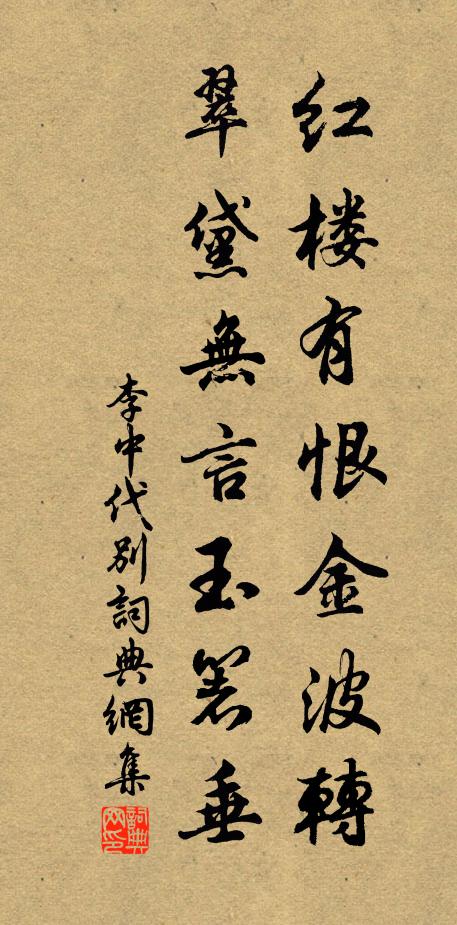 红楼有恨金波轉
翠黛無言玉箸垂
李中代别詞典網集
詞典网印